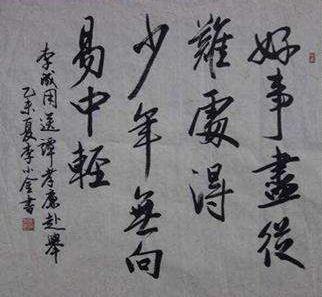 好事盡從
難處得
少年無向
易中輕
李咸用送譚孝廉赴舉
乙未夏李小金書